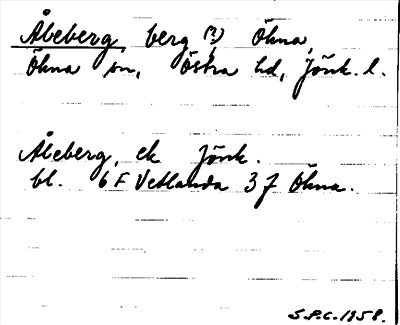 Åbeberg, berg (?) Öhna,
Öhna sn, Östra hd, Jönk. l.
Åleberg, ek Jönk.
bl. 6 F Vetlanda 3 f Öhna.
S.P.C. 1958.